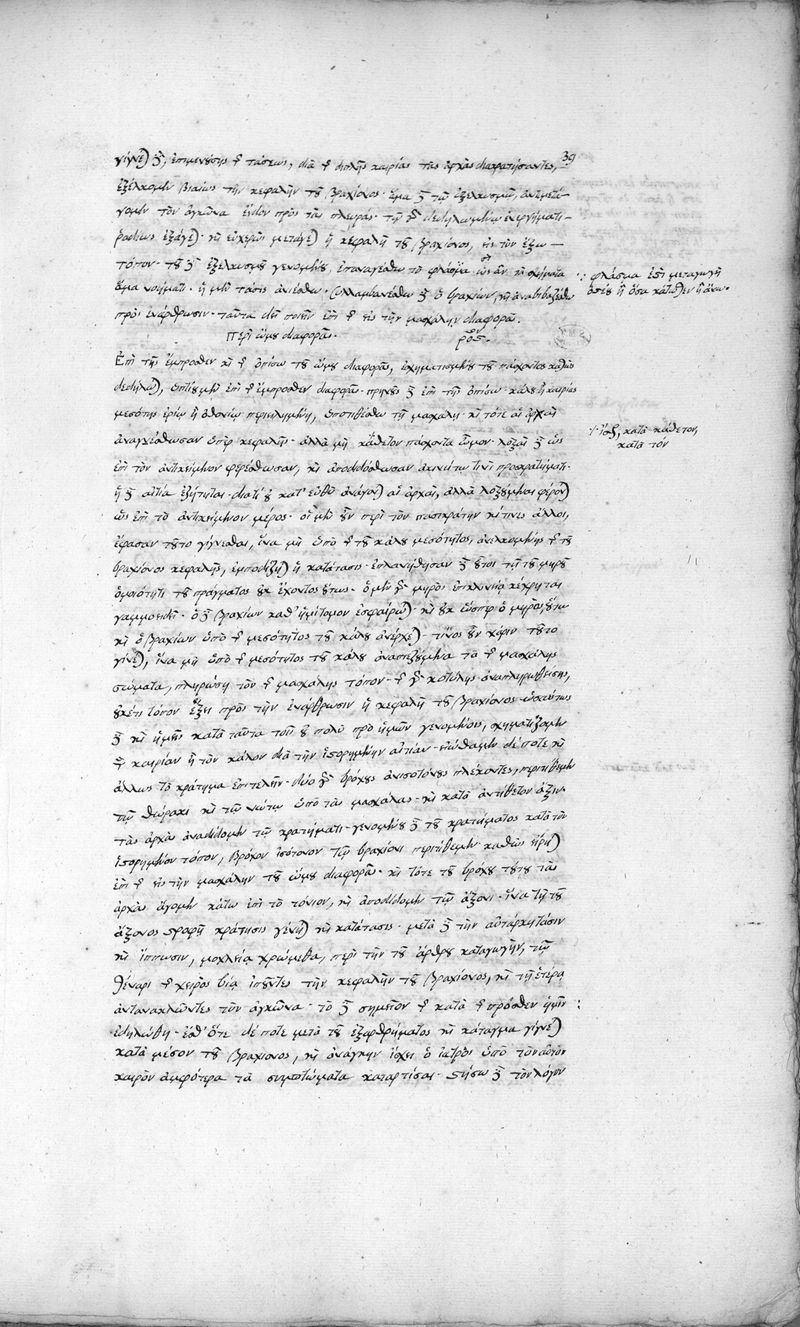 39
ἐπιμενούσης τῆς τάσεως, διὰ τῆς διπλῆς καιρίας τὰς ἀρχὰς διακρατήσαντες,
ἐξέλκομεν βιαίως τὴν κεφαλὴν τοῦ βραχίονος· ἅμα δὲ τῷ ἐξελκυσμῷ,
τὸν ἀγκῶνα ἔνδον πρὸς τὰς πλευράς·
ῥαδίως ἐξάγεται· καὶ εὐχερῶς μετάγεται ἡ κεφαλὴ τοῦ βραχίονος, εἰς τὸν ἔξω
τόπον· τοῦ δὲ ἐξελκυσμοῦ γενομένου, ἐπαναγέσθω τὸ
ἅμα νοήματι· ἡ μὲν τάσις ἀνιέσθω· συλλαμβανέσθω δὲ ὁ βραχίων, καὶ ἀναβιβαζέσθω
πρὸς ἐνάρθρωσιν· ταῦτα δεῖ ποιεῖν ἐπὶ τῆς εἰς τὴν μασχάλην διαφορᾶς.
Περὶ ὤμου διαφορᾶς.
Ἐπὶ τῆς ἔμπροσθεν καὶ τῆς ὀπίσω τοῦ ὤμου διαφορᾶς, ἐσχηματισμένου τοῦ πάσχοντος καθὼς
δεδήλωται, ὑπτίου μὲν ἐπὶ τῆς ἔμπροσθεν διαφορᾶς· πρηνοῦς δὲ ἐπὶ τῆς ὀπίσω· κάλου ἢ καιρίας
μεσότης ἐρίῳ ἢ ὀθονίῳ περιειλημένη, ὑποτιθέσθω τῇ μασχάλῃ· καὶ τότε αἱ ἀρχαὶ
ἀναγέσθωσαν ὑπὲρ κεφαλῆς· ἀλλὰ μὴ κάθετον πάσχοντα ὦμον· λοξαὶ δὲ ὡς
ἐπὶ τὸν ἀντικείμενον φερέσθωσαν, καὶ ἀποδιδόσθωσαν ἀκινήτῳ τινὶ προσκρατήματι·
ἡ δὲ αἰτία ἐζήτηται· διατί οὐ κατ' εὐθὺ ἀνάγονται αἱ ἀρχαί, ἀλλὰ λοξούμεναι φέρονται
ὡς ἐπὶ τὸ ἀντικείμενον μέρος· οἱ μὲν οὖν περὶ τὸν πασικράτην καί τινες ἄλλοι,
ἔφασαν τοῦτο γίνεσθαι, ἵνα μὴ ὑπὸ τῆς τοῦ κάλου μεσότητος, ἀνελκομένης τῆς τοῦ
βραχίονος κεφαλῆς, ἐμποδίζηται ἡ κατάτασις· ἐπλανήθησαν δὲ οὗτοι τῇ τοῦ μηροῦ
ὁμοιότητι τοῦ πράγματος οὐκ ἔχοντος οὕτως· ὁ μὲν γὰρ μηρὸς ἐπικλινείᾳ κέχρηται
γαμμοειδεῖ· ὁ δὲ βραχίων καθ' ἡμίτομον ἐσφαίρωται· καὶ οὐκ ὥσπερ ὁ μηρός, οὕτω
καὶ ὁ βραχίων ὑπὸ τῆς μεσότητος τοῦ κάλου ἀνέρχεται· τίνος οὖν χάριν τοῦτο
γίνεται, ἵνα μὴ ὑπὸ τῆς μεσότητος τοῦ κάλου ἀναπιεζούμενα τὰ τῆς μασχάλης
σώματα, πληρώσῃ τὸν τῆς μασχάλης τόπον· τῆς γὰρ κοτύλης ἀναπληρωθείσης,
οὐκέτι τόπον ἕξει πρὸς τὴν ἐνάρθρωσιν ἡ κεφαλὴ τοῦ βραχίονος· ὡσαύτως
δὲ καὶ ἡμεῖς κατὰ ταῦτα τοῖς οὐ πολὺ πρὸ ἡμῶν γενομένοις, σχηματίζομεν
τὴν καιρίαν ἢ τὸν κάλον διὰ τὴν ἱστορημένην αἰτίαν· εἰώθαμεν δέ ποτε καὶ
ἄλλως τὸ κράτημα ἐπιτελεῖν· δύο γὰρ βρόχους ἀνισοτόνους πλέκοντες, περιτίθεμεν
τῷ θώρακι καὶ τῷ νώτῳ ὑπὸ τὰς μασχάλας· καὶ κατὰ ἀντίθετον ἄξονα
τὰς ἀρχὰς ἀναδίδομεν τῷ κρατήματι· γενομένου δὲ τοῦ κρατήματος κατὰ τὸν
ἱστορημένον τόπον, βρόχον ἰσότονον τῷ βραχίονι περιτίθεμεν καθὼς εἴρηται
ἐπὶ τῆς εἰς τὴν μασχάλην τοῦ ὤμου διαφορᾶς· καὶ τότε τοῦ βρόχου τούτου τὰς
ἀρχὰς ἄγομεν κάτω ἐπὶ τὸ τόνιον, καὶ ἀποδίδομεν τῷ ἄξονι· ἵνα τῇ τοῦ
ἄξονος στροφῇ κράτησις γένηται καὶ κατάτασις· μετὰ δὲ τὴν αὐτάρκη τάσιν
καὶ ἵππωσιν, μοχλείᾳ χρώμεθα, περὶ τὴν τοῦ ἄρθρου καταγωγήν, τῷ
θέναρι τῆς χειρὸς βίᾳ ὠθοῦντες τὴν κεφαλὴν τοῦ βραχίονος, καὶ τῇ ἑτέρᾳ
ἀντανακλῶντες τὸν ἀγκῶνα· τὸ δὲ σημεῖον τῆς κατὰ τῆς πρόσθεν ἡμῖν
ἐδηλώθη· ἔσθ' ὅτε δέ ποτε μετὰ τοῦ ἐξαρθρήματος καὶ κάταγμα γίνεται
κατὰ μέσον τοῦ βραχίονος, καὶ ἀνάγκην ἴσχει ὁ ἰατρὸς ὑπὸ τὸν αὐτὸν
καιρὸν ἀμφότερα τὰ συμπτώματα καταρτίσαι· στήσω δὲ τὸν λόγον
φλάσμα ἐστὶ μεταγωγὴ
ὀστοῦ ἢ ὅσα κάτωθεν ἢ ἄνω.
ἴσως, κατὰ κάθετον,
κατὰ τὸν